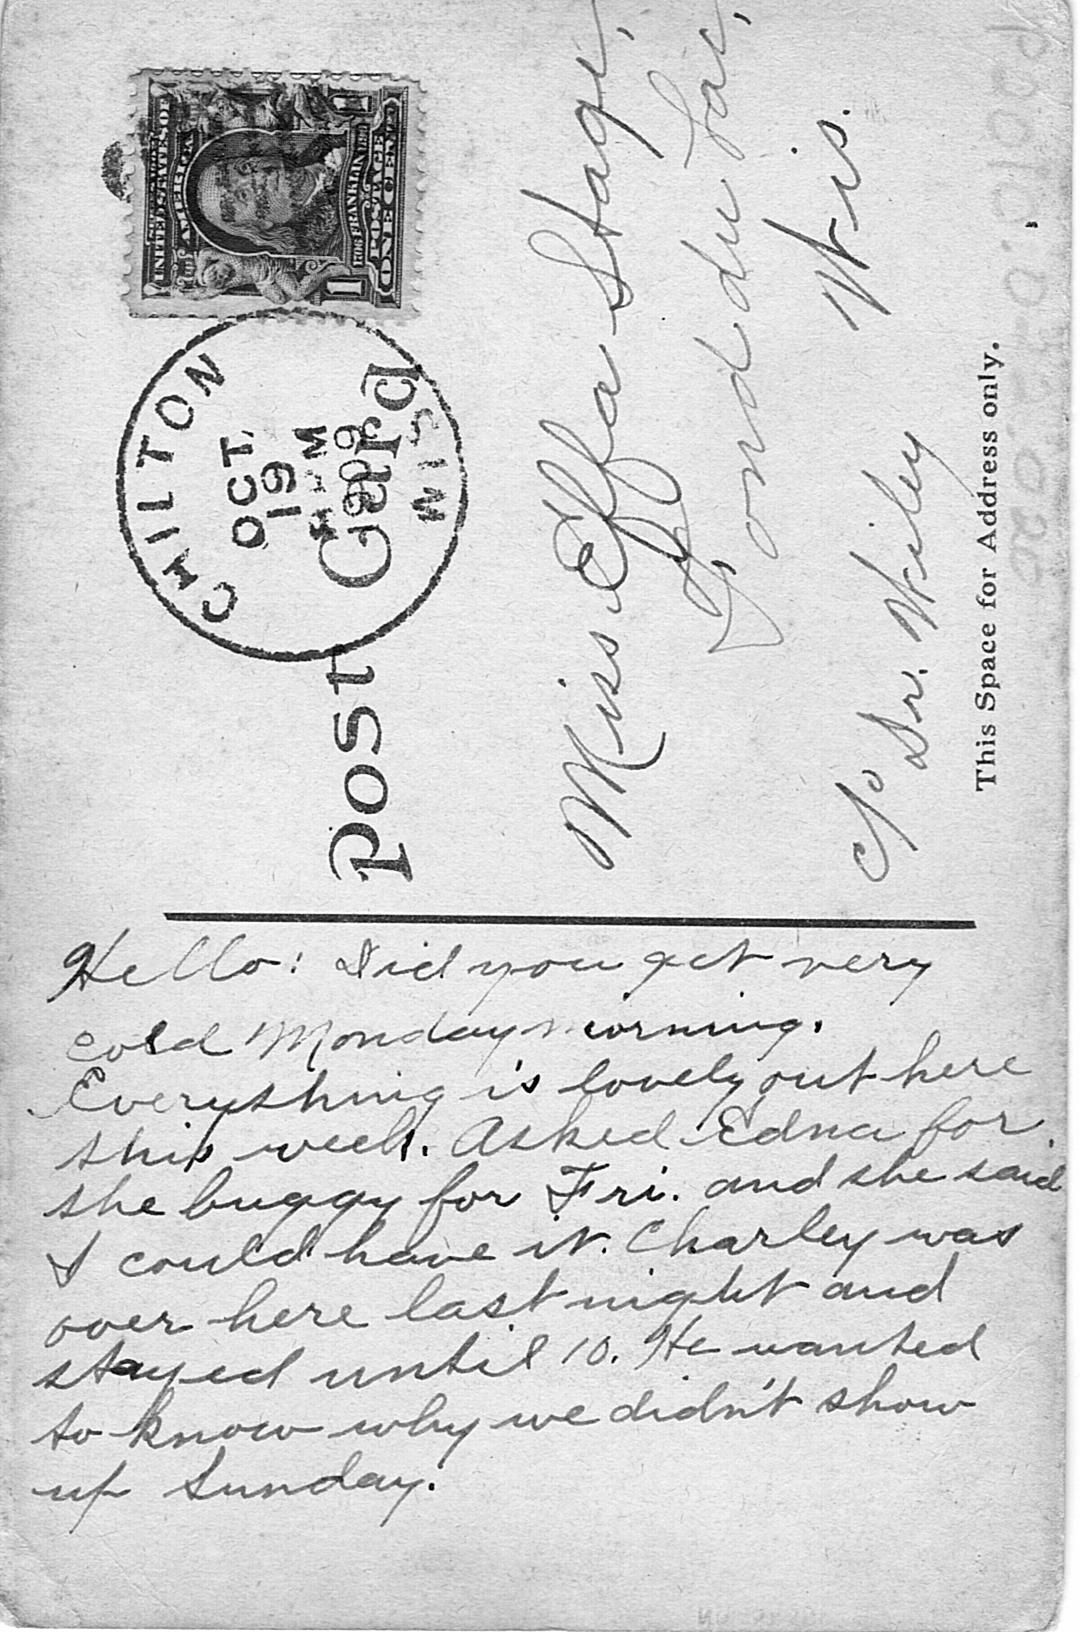 UNITED STATES OF
AMERICA
FRANKLIN
POSTAGE
ONE CENT
1 1
CHILTON
OCT
19
M
WIS.
Post Card
Miss Effa Stage,
Fond du Lac,
Wis.
c/o Dr. Wiley
This Space for Address only.
Hello: Did you get very
cold Monday morning.
Everything is lovely out here
this week. Asked Edna for
the buggy for Fri. and she said
I could have it. Charley was
over here last night and
stayed until 10. He wanted
to know why we didn't show
up Sunday.